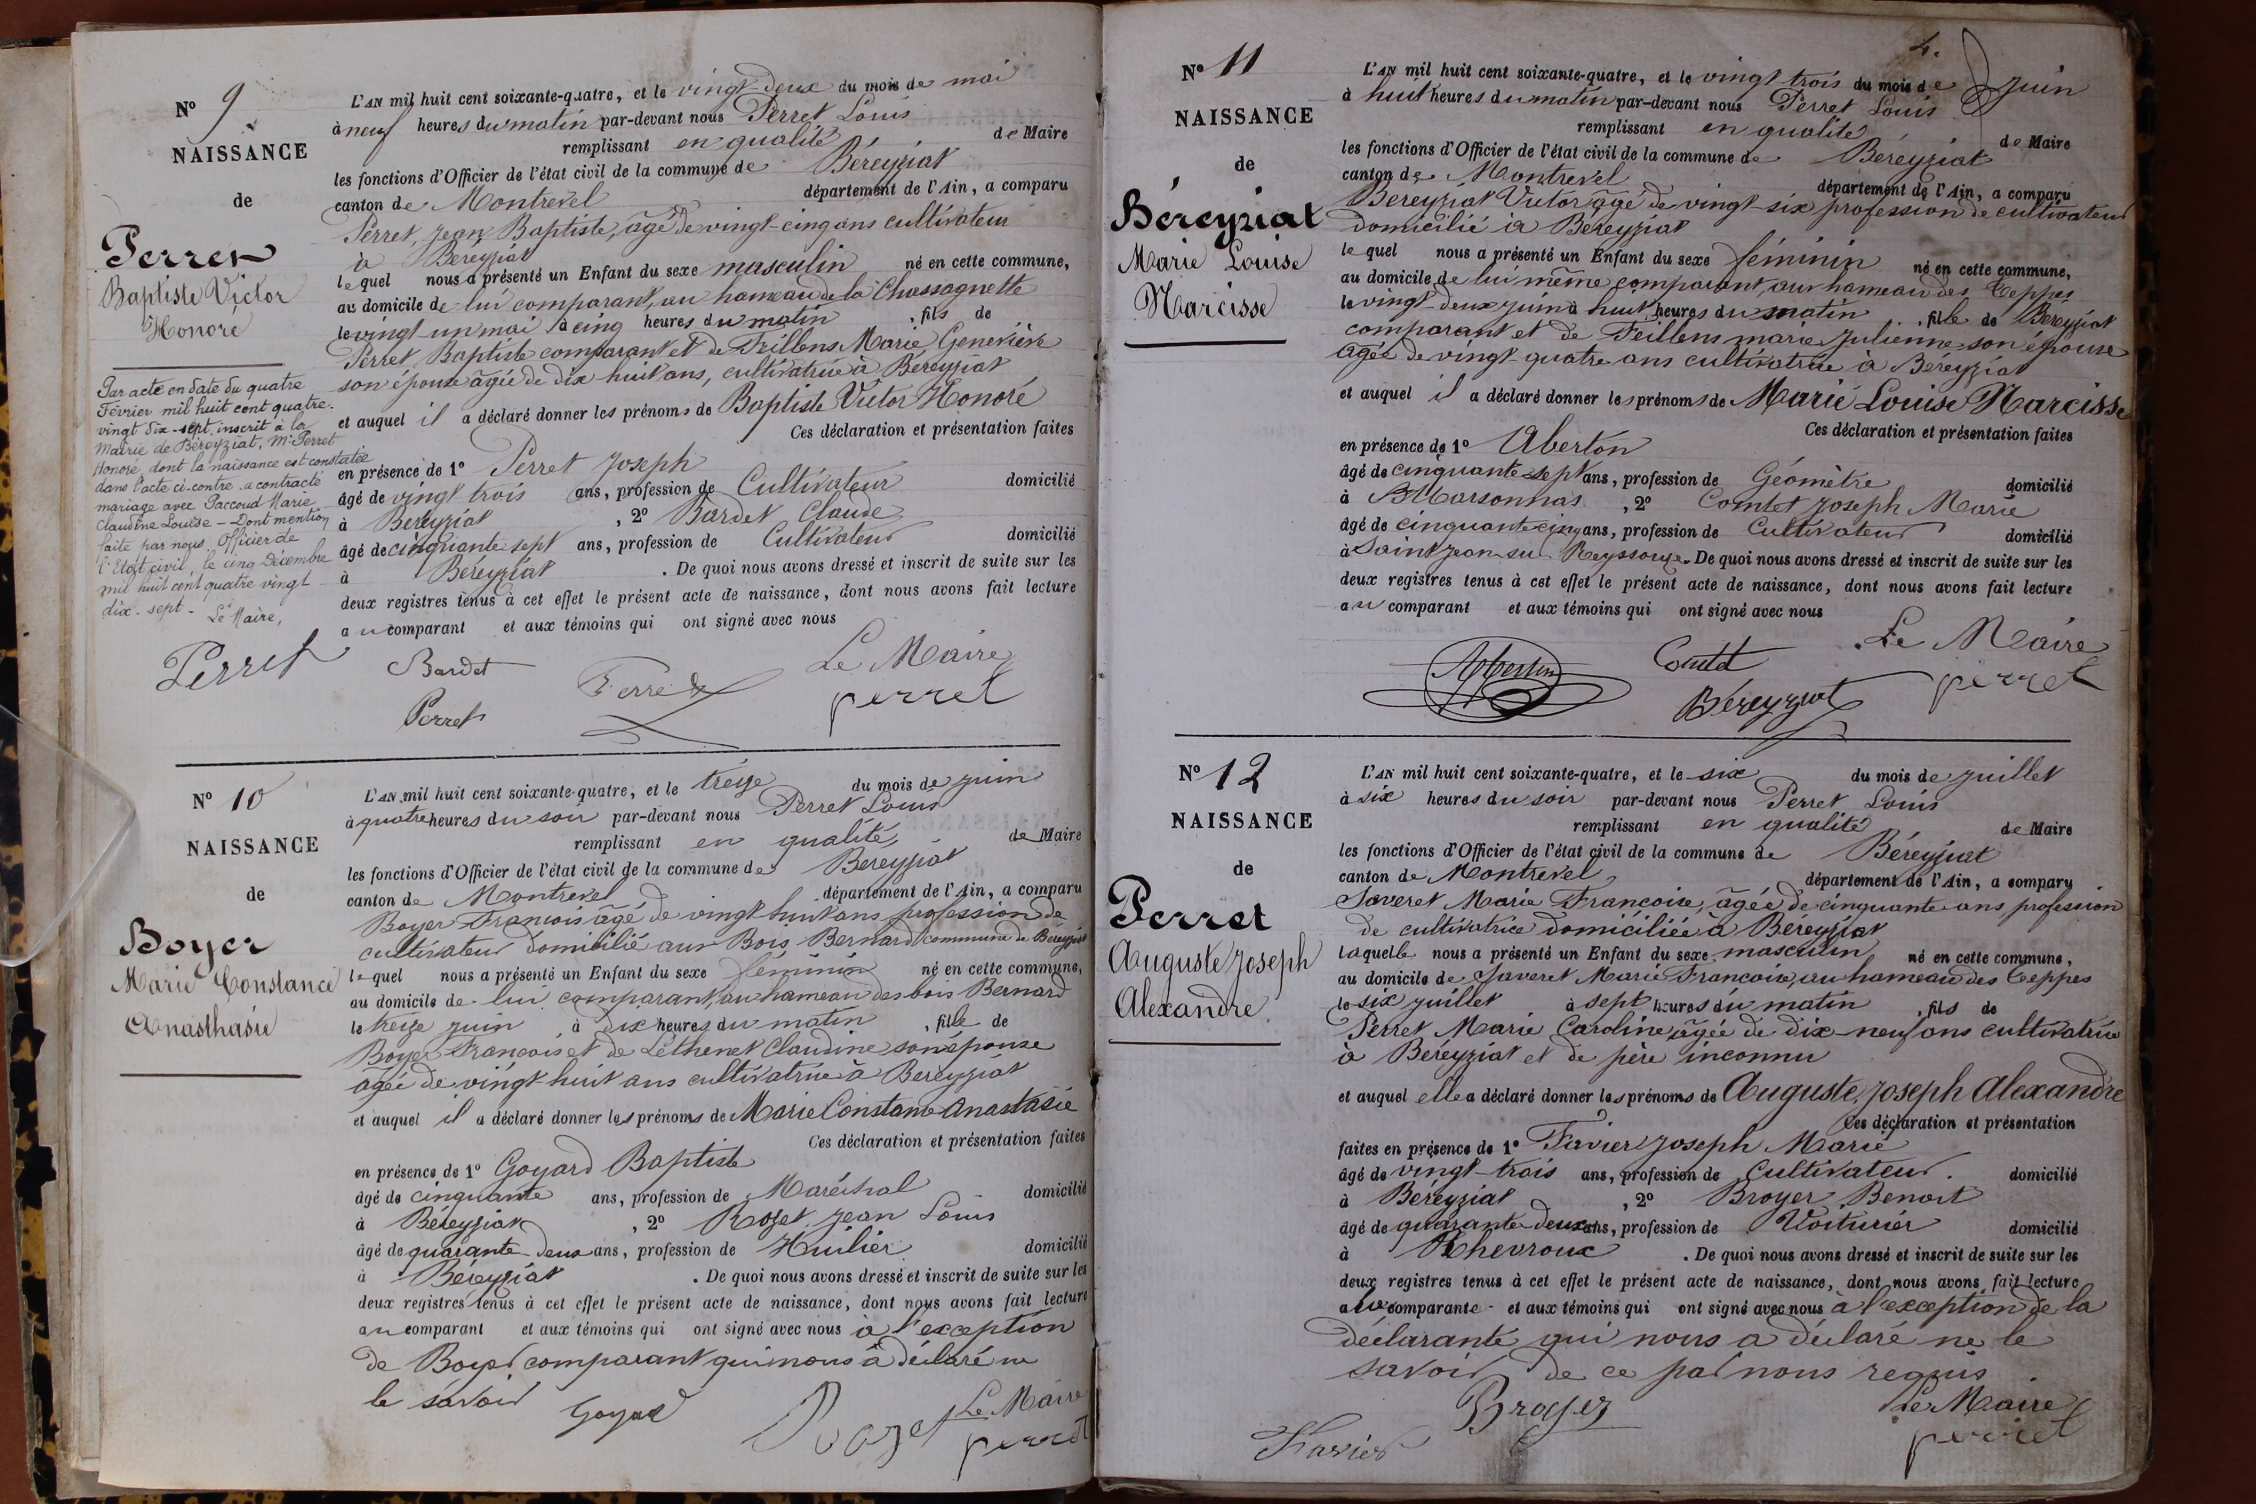 Nº 9
NAISSANCE
de
Perret
Baptiste Victor
Honoré
Par acte en date du quatre
Février mil huit cent quatre-
vingt dix-sept, inscrit à la
Mairie de Béreyziat, Mr Perret
Honoré, dont la naissance est constatée
dans l'acte ci-contre a contracté
mariage avec Paccoud Marie
Claudine Louise – Dont mention
faite par nous Officier de
l'Etat civil, le cinq Décembre
mil huit cent quatre vingt
dix-sept -
Le Maire,
Perret
L'AN mil huit cent soixante-quatre, et le vingt-deux du mois de mai
à neuf heures du matin par-devant nous Perret Louis
remplissant en qualité de Maire
les fonctions d'Officier de l'état civil de la commune de Béreyziat
canton de Montrevel département de l'Ain, a comparu
Perret, Jean Baptiste, âgé de vingt-cinq ans cultivateur
à Béreyziat
lequel nous a présenté un Enfant du sexe masculin né en cette commune,
au domicile de lui comparant, au hameau de la Chassagnette
le vingt un mai à cinq heures du matin, fils de
Perret, Baptiste comparant et de Feillens Marie Geneviève
son épouse âgée de dix huit ans, cultivatrice à Béreyziat
et auquel il a déclaré donner les prénoms de Baptiste Victor Honoré
Ces déclaration et présentation faites
en présence de 1º Perret Joseph
âgé de vingt trois ans, profession de Cultivateur domicilié
à Béreyziat, 2º Bardet Claude
âgé de cinquante sept ans, profession de Cultivateur domicilié
à Béreyziat. De quoi nous avons dressé et inscrit de suite sur les
deux registres tenus à cet effet le présent acte de naissance, dont nous avons fait lecture
au comparant et aux témoins qui ont signé avec nous
Bardet Perret Le Maire
Perret perret
Nº 10
NAISSANCE
de
Boyer
Marie Constance
Anasthasie
L'AN mil huit cent soixante-quatre, et le treize du mois de juin
à quatre heures du soir par-devant nous Perret Louis
remplissant en qualité de Maire
les fonctions d'Officier de l'état civil de la commune de Béreyziat
canton de Montrevel département de l'Ain, a comparu
Boyer François âgé de vingt huit ans profession de
cultivateur domicilié aux Bois Bernard commune de Béreyziat
lequel nous a présenté un Enfant du sexe féminin né en cette commune,
au domicile de lui comparant, au hameau des bois Bernard
le treize juin à dix heures du matin, fille de
Boyer François et de Léthenet Claudine son épouse
âgée de vingt huit ans cultivatrice à Béreyziat
et auquel il a déclaré donner les prénoms de Marie Constance Anastasie
Ces déclaration et présentation faites
en présence de 1º Goyard Baptiste
âgé de cinquante ans, profession de Maréchal domicilié
à Béreyziat, 2º Rozet Jean Louis
âgé de quarante deux ans, profession de Huilier domicilié
à Béreyziat. De quoi nous avons dressé et inscrit de suite sur les
deux registres tenus à cet effet le présent acte de naissance, dont nous avons fait lecture
au comparant et aux témoins qui ont signé avec nous à l'exception
de Boyer comparant qui nous a déclaré ne
le savoir
Goyard Rozet Le Maire
perret
4.
Nº 11
NAISSANCE
de
Béreyziat
Marie Louise
Narcisse
L'AN mil huit cent soixante-quatre, et le vingt trois du mois de juin
à huit heures du matin par-devant nous Perret Louis
remplissant en qualité de Maire
les fonctions d'Officier de l'état civil de la commune de Béreyziat
canton de Montrevel département de l'Ain, a comparu
Béreyziat Victor âgé de vingt-six profession de cultivateur
domicilié à Béreyziat
lequel nous a présenté un Enfant du sexe féminin né en cette commune,
au domicile de lui même comparant, au hameau des Teppes
le vingt deux juin à huit heures du matin, fille de Béreyziat
comparant et de Feillens marie Julienne son épouse
âgée de vingt quatre ans cultivatrice à Béreyziat
et auquel il a déclaré donner les prénoms de Marie Louise Narcisse
Ces déclaration et présentation faites
en présence de 1º Aberton
âgé de cinquante sept ans, profession de Géomètre domicilié
à Marsonnas, 2º Comtet Joseph Marie
âgé de cinquante cinq ans, profession de Cultivateur domicilié
à Saint Jean su Reyssouze. De quoi nous avons dressé et inscrit de suite sur les
deux registres tenus à cet effet le présent acte de naissance, dont nous avons fait lecture
au comparant et aux témoins qui ont signé avec nous
Comtet Le Maire
Béreyziat perret
Nº 12
NAISSANCE
de
Perret
Auguste Joseph
Alexandre
L'AN mil huit cent soixante-quatre, et le six du mois de juillet
à six heures du soir par-devant nous Perret Louis
remplissant en qualité de Maire
les fonctions d'Officier de l'état civil de la commune de Béreyziat
canton de Montrevel département de l'Ain, a comparu
Javeret Marie Françoise, âgée de cinquante ans profession
de cultivatrice domiciliée à Béreyziat
laquelle nous a présenté un Enfant du sexe masculin né en cette commune,
au domicile de Javeret Marie Françoise, au hameau des Teppes
le six juillet à sept heures du matin, fils de
Perret Marie Caroline, âgée de dix-neuf ans cultivatrice
à Béreyziat et de père inconnu
et auquel elle a déclaré donner les prénoms de Auguste, Joseph Alexandre
Ces déclaration et présentation
faites en présence de 1º Favier Joseph Marie
âgé de vingt-trois ans, profession de Cultivateur. domicilié
à Béreyziat, 2º Broyer Benoit
âgé de quarante deux ans, profession de Voiturier domicilié
à Chevroux. De quoi nous avons dressé et inscrit de suite sur les
deux registres tenus à cet effet le présent acte de naissance, dont nous avons fait lecture
a la comparante et aux témoins qui ont signé avec nous à l'exception de la
déclarante qui nous a déclaré ne le
savoir de ce par nous requis
Favier Broyer Le Maire
perret